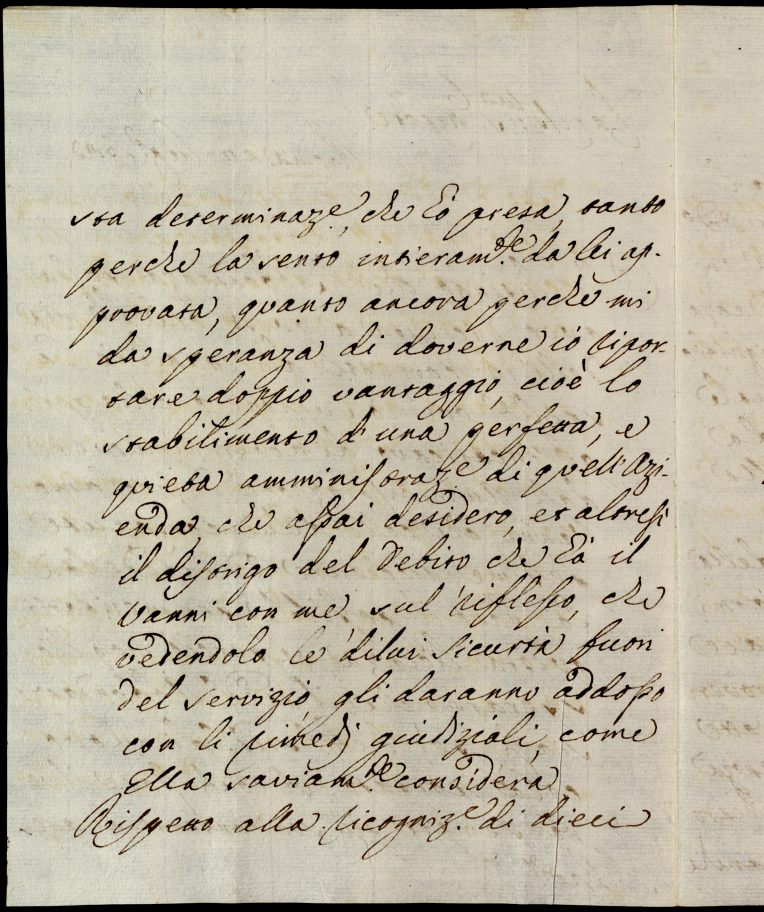 sta determinaz.e, che ò presa, tanto
perche la sento intieram.te da lei ap-
provata, quanto ancora perche mi
da speranza di doverne io ripor-
tare doppio vantaggio, cioè lo
stabilimento d'una perfetta, e
quieta amministraz.e di quell'Azi-
enda, che assai desidero, et altresi
il disbrigo del Debito che à il
Vanni con me sul riflesso, che
vedendolo le di lui Sicurtà fuori
del servizio, gli daranno addosso
con li rimedj giudiziali, come
Ella saviam.te considera
Rispetto alla ricogniz.e di dieci